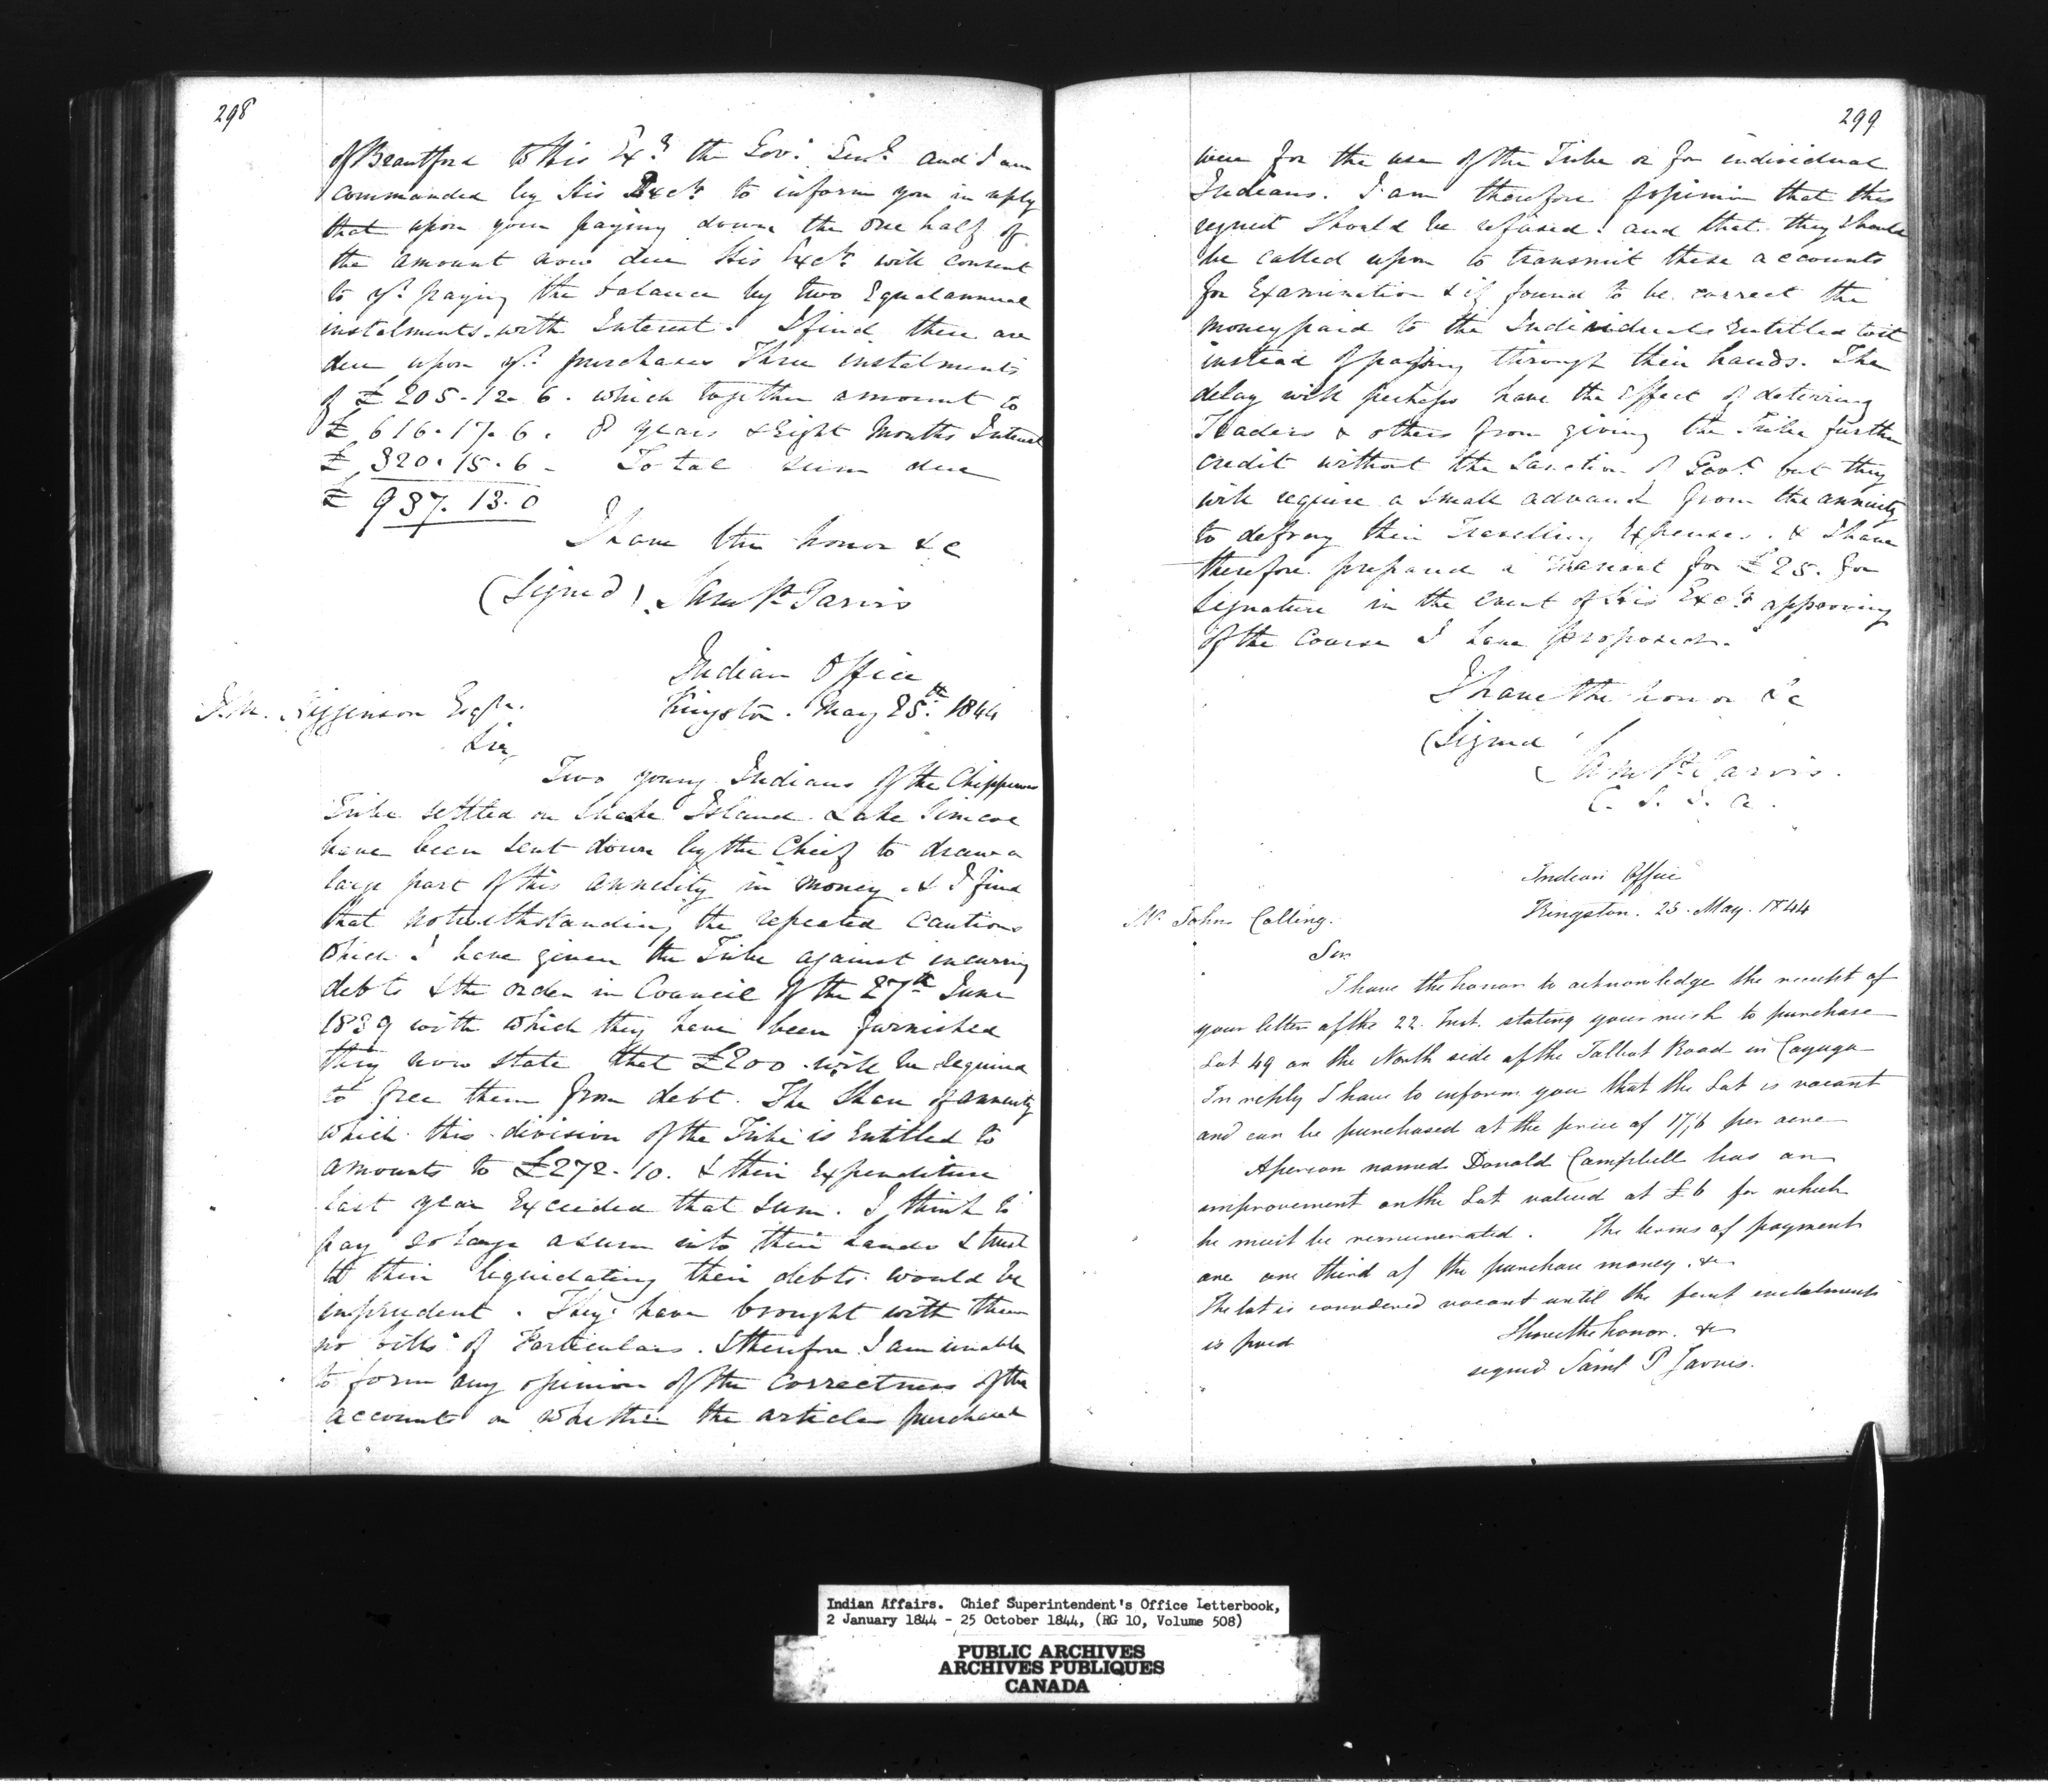 298
of Brantford to His Exy. the Gov. Genl. and I am
commanded by His Excy. to inform you in reply
that upon your paying down the one half of
the amount now due His Excy. will consent
to yr. paying the balance by two Equal annual
instalments with Interest. I find there are
due upon yr. purchases Three instalments
of £205.12.6. which together amount to
£616.17.6. 8 years & Eight Months Interest
£320.15.6 - Total sum due
£937.13.0
I have the honor &c
(Signed) Saml P. Jarvis
Indian Office
J.M. Higginson Esqre. Kingston. May 25th. 1844
Sir,
Two young Indians of the Chippewa
Tribe settled on Snake Island Lake Simcoe
have been sent down by the Chief to draw a
large part of this annuity in money. & I find
that notwithstanding the repeated cautions
which I have given the Tribe against incurring
debts & the order in Council of the 27th June
1839 with which they have been furnished
they now state that £200 will be required
to free them from debt. The Share of annuity
which this division of the Tribe is Entitled to
amounts to £272.10. & their Expenditure
last year Exceeded that sum. I think to
pay so large a sum into their hands & trust
to their liquidating their debts would be
imprudent. They have brought with them
no bills of Particulars. & therefore I am unable
to form any opinion of the correctness of the
accounts or whether the articles purchased
299
were for the use of the Tribe or for individual
Indians. I am therefore of opinion that this
request should be refused. and that they should
be called upon to transmit these accounts
for Examination & if found to be correct the
money paid to the Individuals Entitled to it
instead of passing through their hands. The
delay will perhaps have the Effect of deterring
Traders & others from giving the Tribe further
credit without the Sanction of Govt. but they
will require a small advance from the annuity
to defray their Travelling Expenses. & I have
therefore prepared a Warrant for £25. for
signature in the event of His Excy. approving
of the Course I have proposed.
I have the honor &c
(Signed
Saml P. Jarvis.
C. S. I. A.
Indian Office
Kingston. 25. May. 1844
Mr. John Colling.
Sir
I have the honor to acknowledge the receipt of
your letter of the 22. Inst. stating your wish to purchase
Lot 49 on the North side of the Talbot Road in Cayuga
In reply I have to inform you that the Lot is vacant
and can be purchased at the price of 17/6 per acre
A person named Donald Campbell has an
improvement on the Lot valued at £6 for which
he must be remunerated. The terms of payment
are one third of the purchase money. &c
The lot is considered vacant until the first instalment
is paid I have the honor. &c
signed Saml P Jarvis.
Indian Affairs. Chief Superintendent's Office Letterbook,
2 January 1844 - 25 October 1844, (RG 10, Volume 508)
PUBLIC ARCHIVES
ARCHIVES PUBLIQUES
CANADA